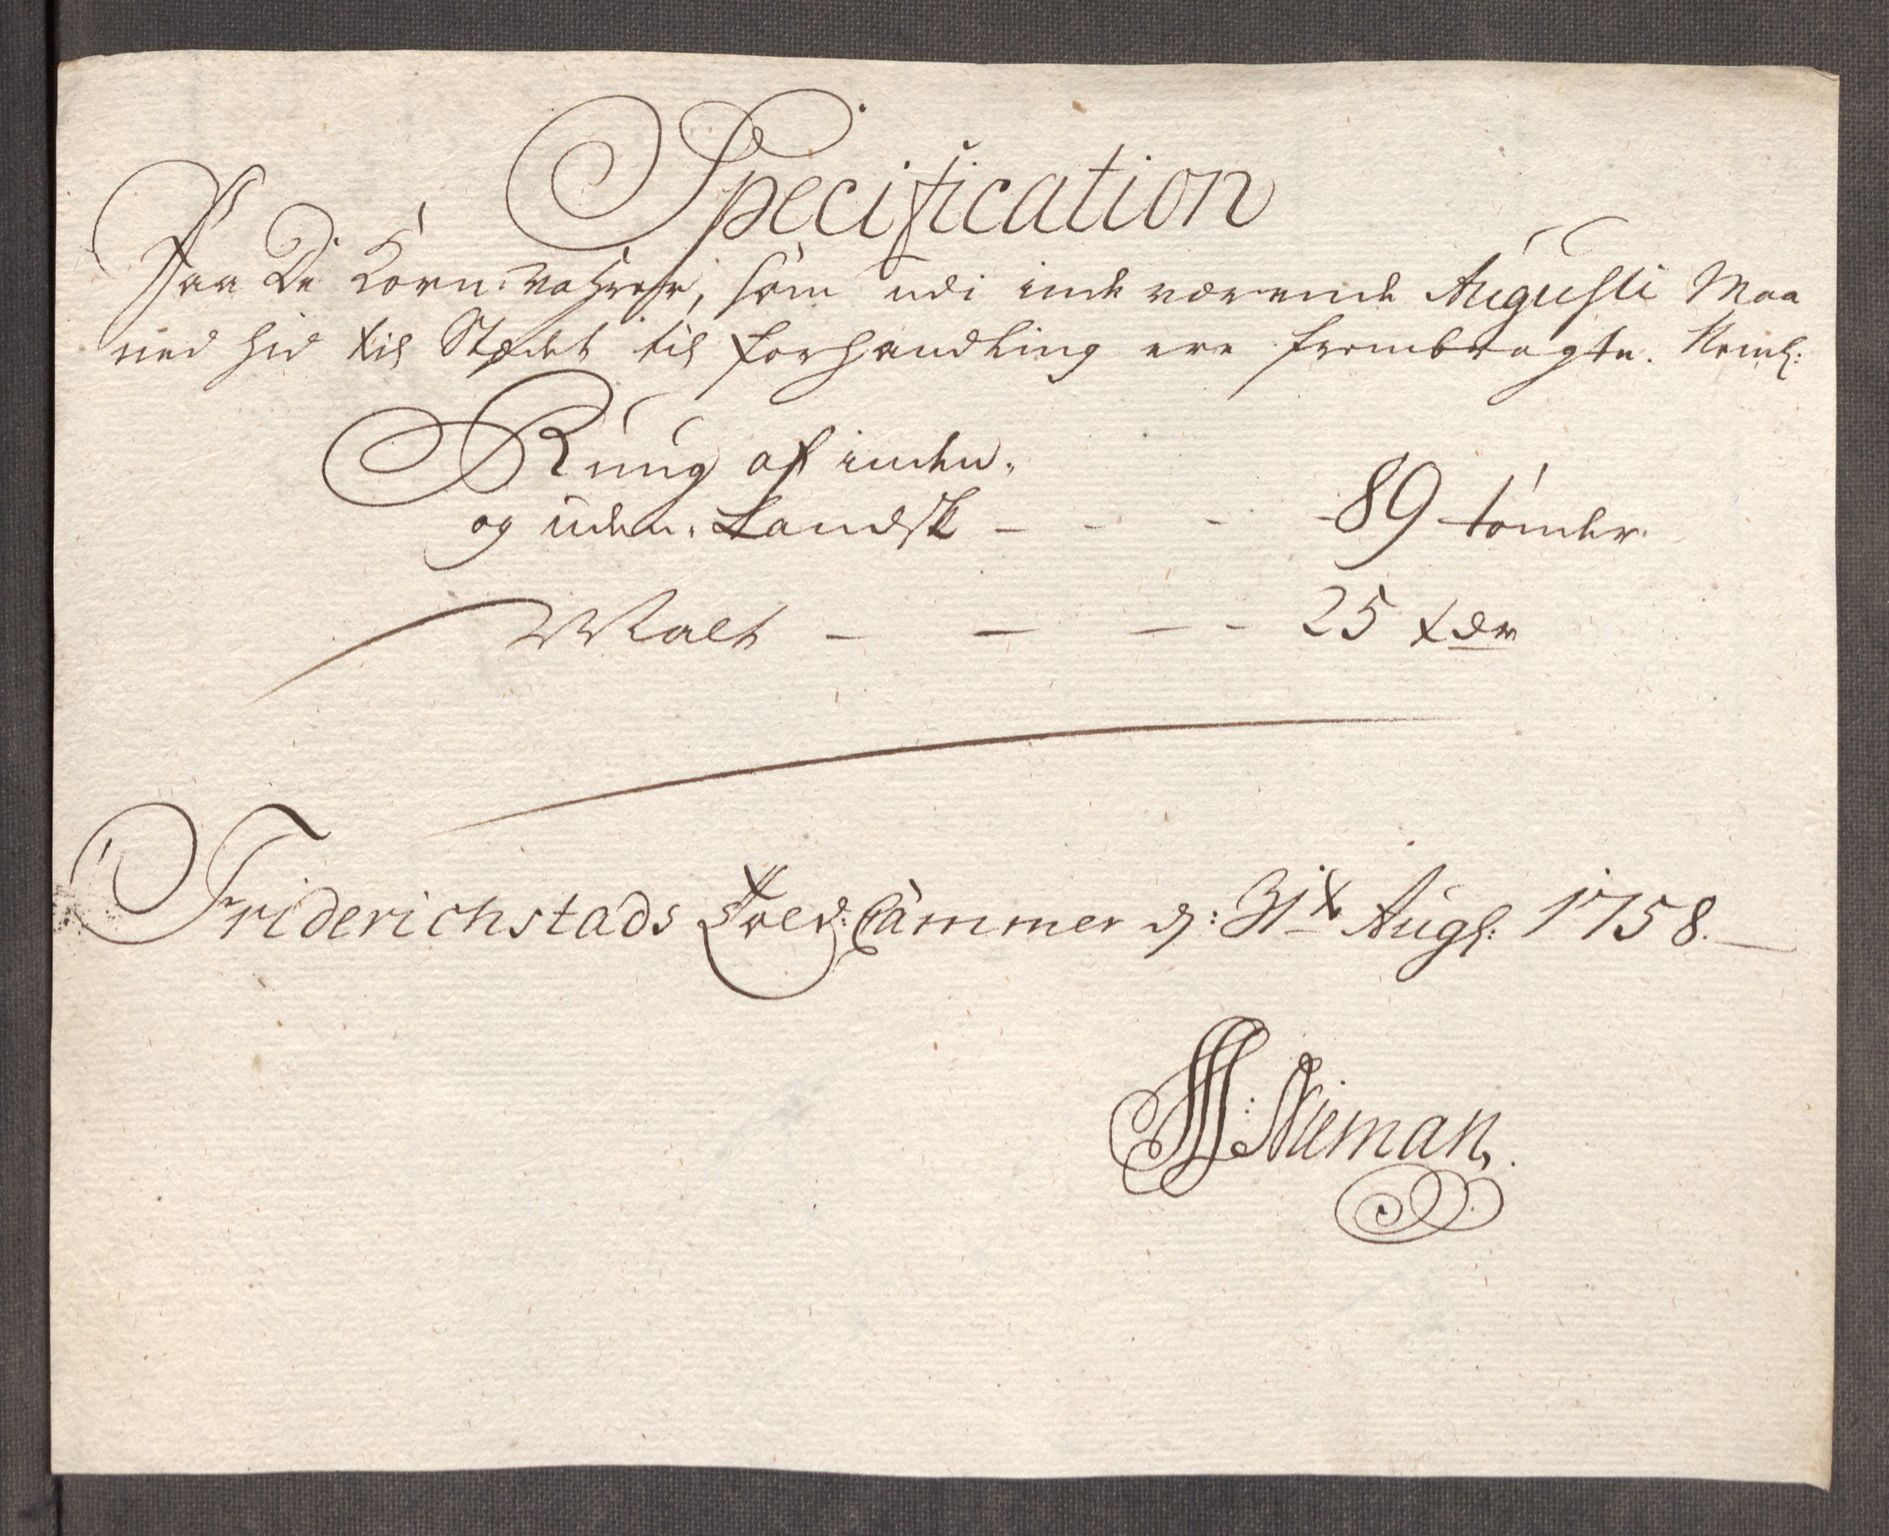 Specification
Paa De Korn-Vahrer, som udi inde værende Augusti Maa
ned hid til Stædet til forhandling ere frembragte. Neml:
Ruug af inden-
og uden-Landsk - - - 89 tønder
Malt - - - - 25 tdr
Friderichstads Told-Cammer d: 31te Aug: 1758.
Nieman